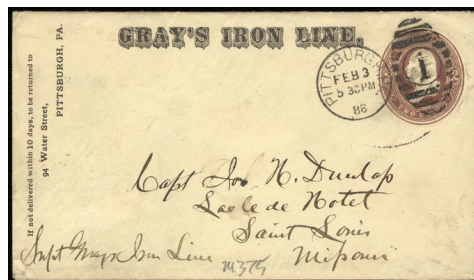 GRAY'S IRON LINE.
If not delivered within 10 days, to be returned to
94 Water Street,
PITTSBURGH, PA.
PITTSBURGH
FEB 3
5 30PM
86
1
Capt Jos. N. Dunlap
Laclede Hotel
Saint Louis
Missouri
Supt Grays Iron Line